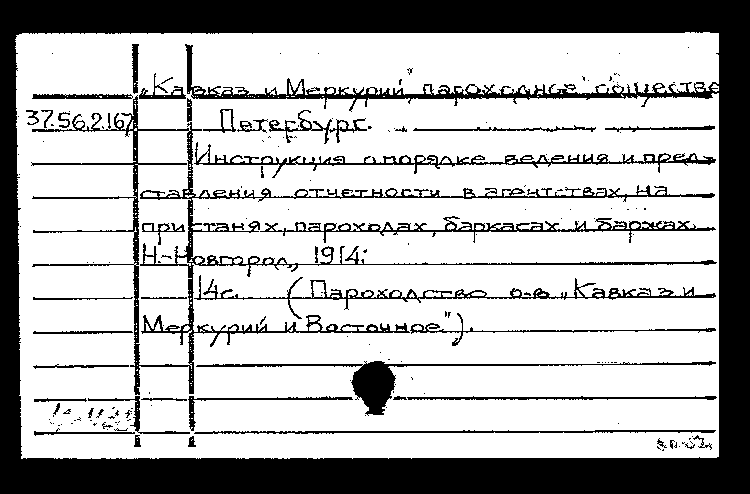 „Кавказ и Меркурий", пароходное обществе
37.56.2.167 Петербург.
Инструкция о порядке ведения и пред-
ставления отчетности в агентствах, на
пристанях, пароходах, баркасах и баржах.
Н.-Новгород, 1914.
14с. (Пароходство о-в „Кавказ и
Меркурий и Восточное").